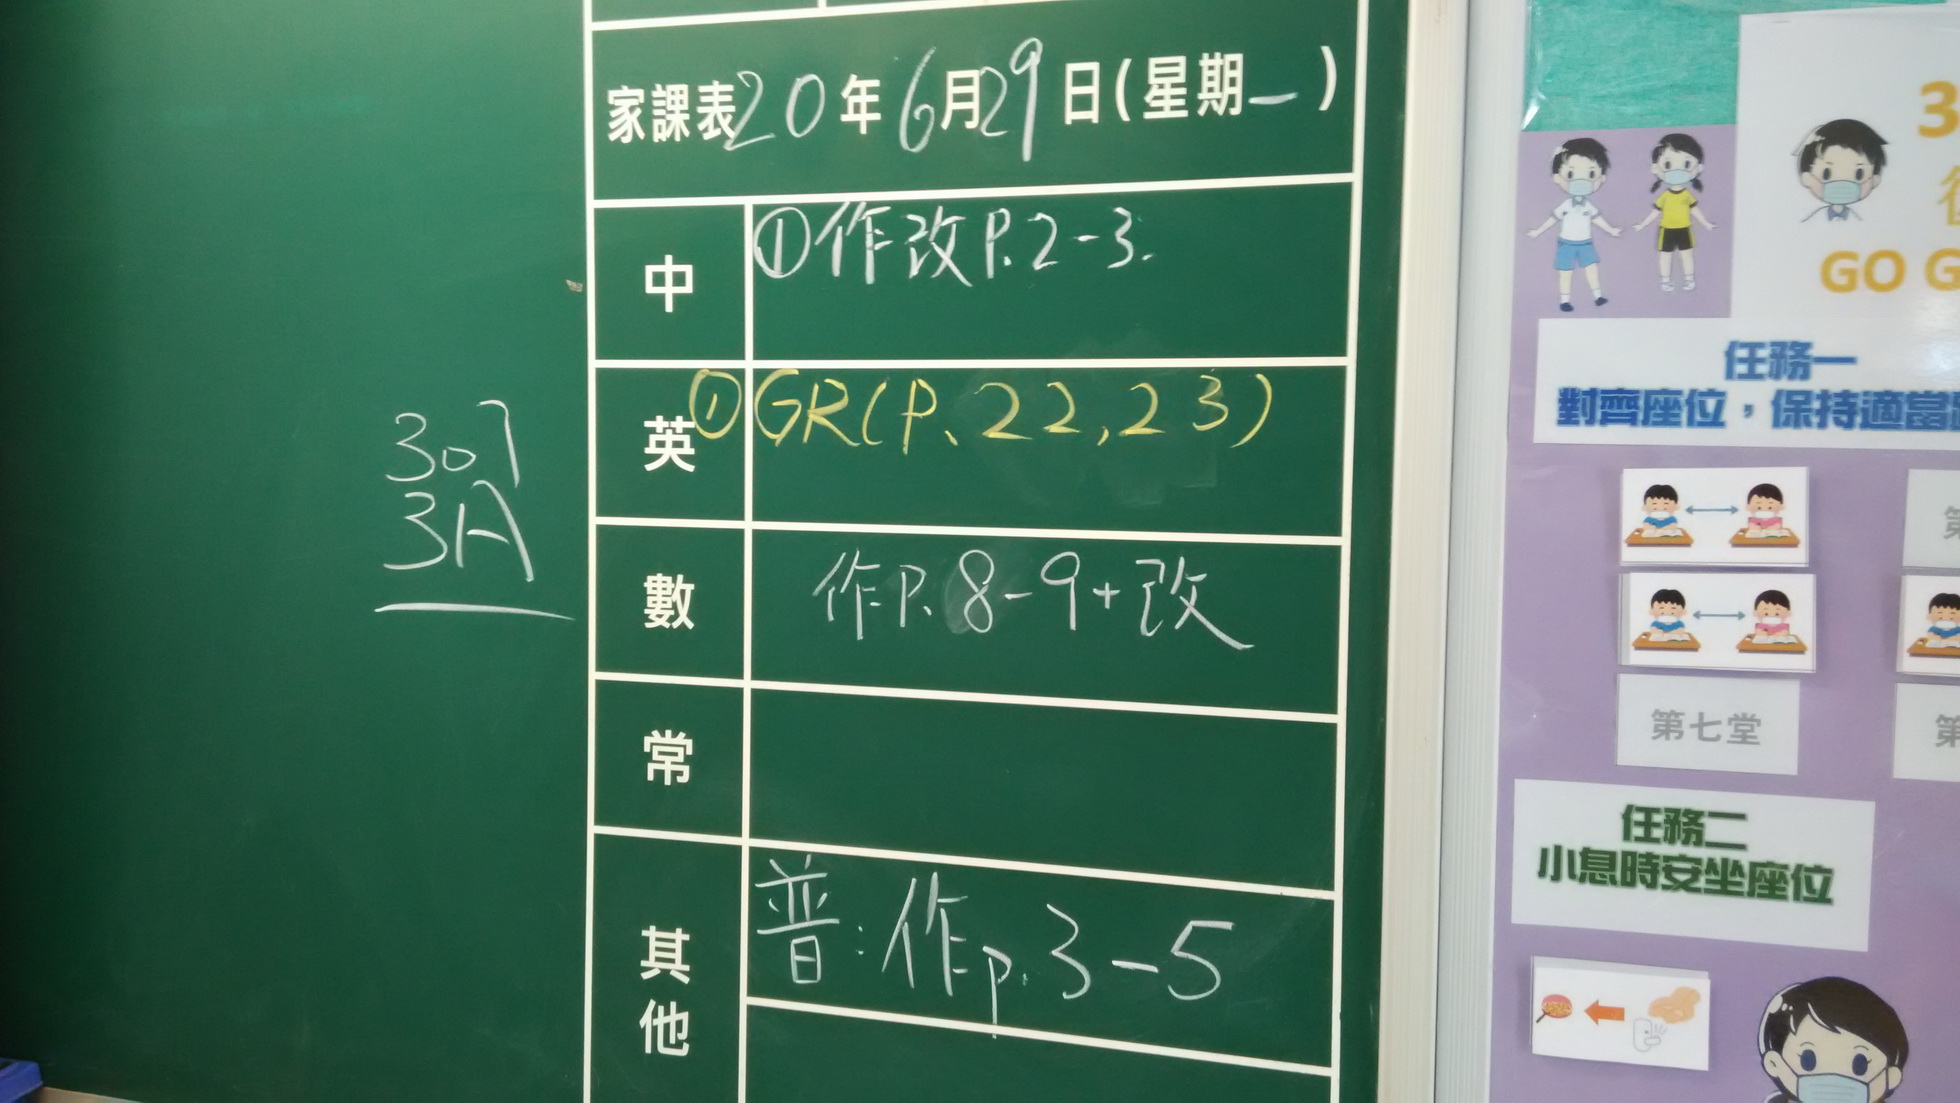 家課表20年6月29日(星期一)
中
①作改P.2-3.
英
①GR(P.22,23)
數
作P.8-9+改
常
其他
普:作p.3-5
307
3A
3
GO G
任務一
對齊座位，保持適當
第七堂
任務二
小息時安坐座位